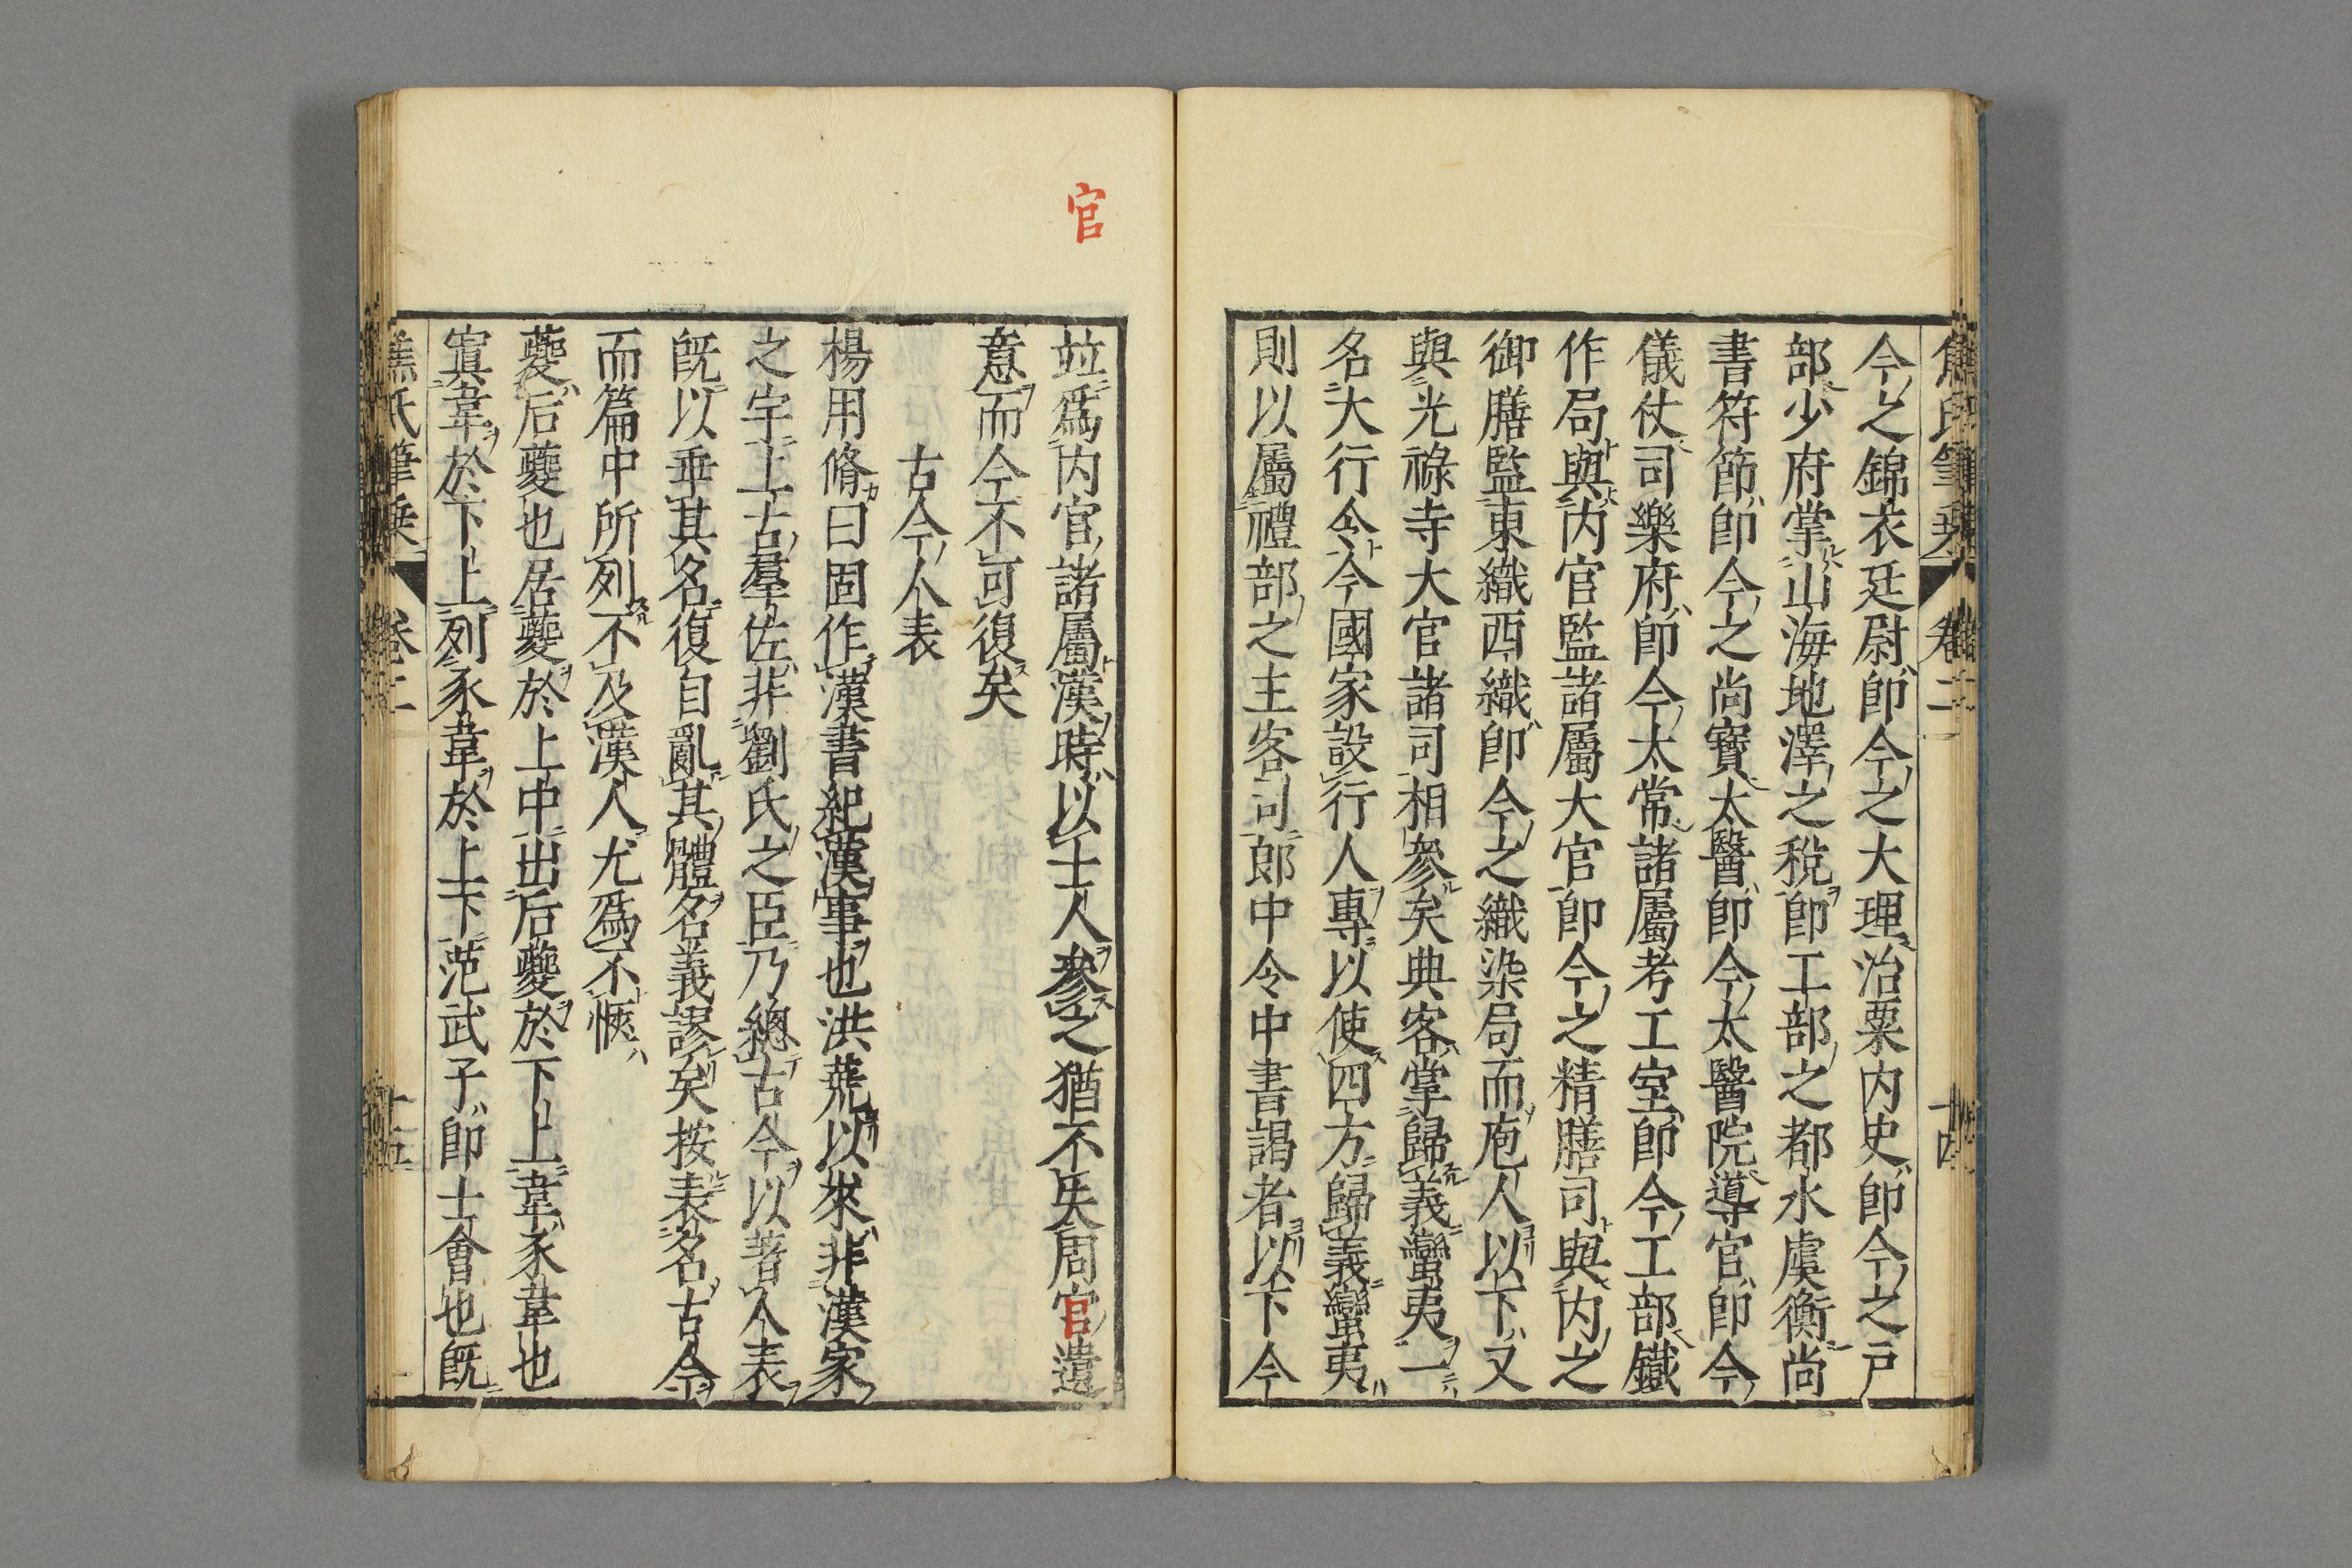 焦氏筆乘 卷二 十四
今之錦衣廷尉即今之大理治粟内史即今之戸
部少府掌山海地澤之稅即工部之都水虞衡尚
書符節即今之尚寶太醫即今太醫院導官即今
儀仗司樂府即今太常諸屬考工室即今工部鐵
作局與内官監諸屬大官即今之精膳司與内之
御膳監東織西織即今之織染局而庖人以下又
與光祿寺大官諸司相參矣典客掌歸義蠻夷一
名大行令今國家設行人專以使四方歸義蠻夷
則以屬禮部之主客司郎中令中書謁者以下今
官
竝爲内官諸屬漢時以士人參之猶不失周官遺
意而今不可復矣
古今人表
楊用脩曰固作漢書紀漢事也洪荒以來非漢家
之宇上古羣佐非劉氏之臣乃總古今以著人表
既以垂其名復自亂其體名義謬矣按表名古今
而篇中所列不及漢人尤爲不愜
夔后夔也居夔於上中出后夔於下上韋豕韋也
寘韋於下上列豕韋於上下范武子即士會也既
焦氏筆乘 卷二 十五